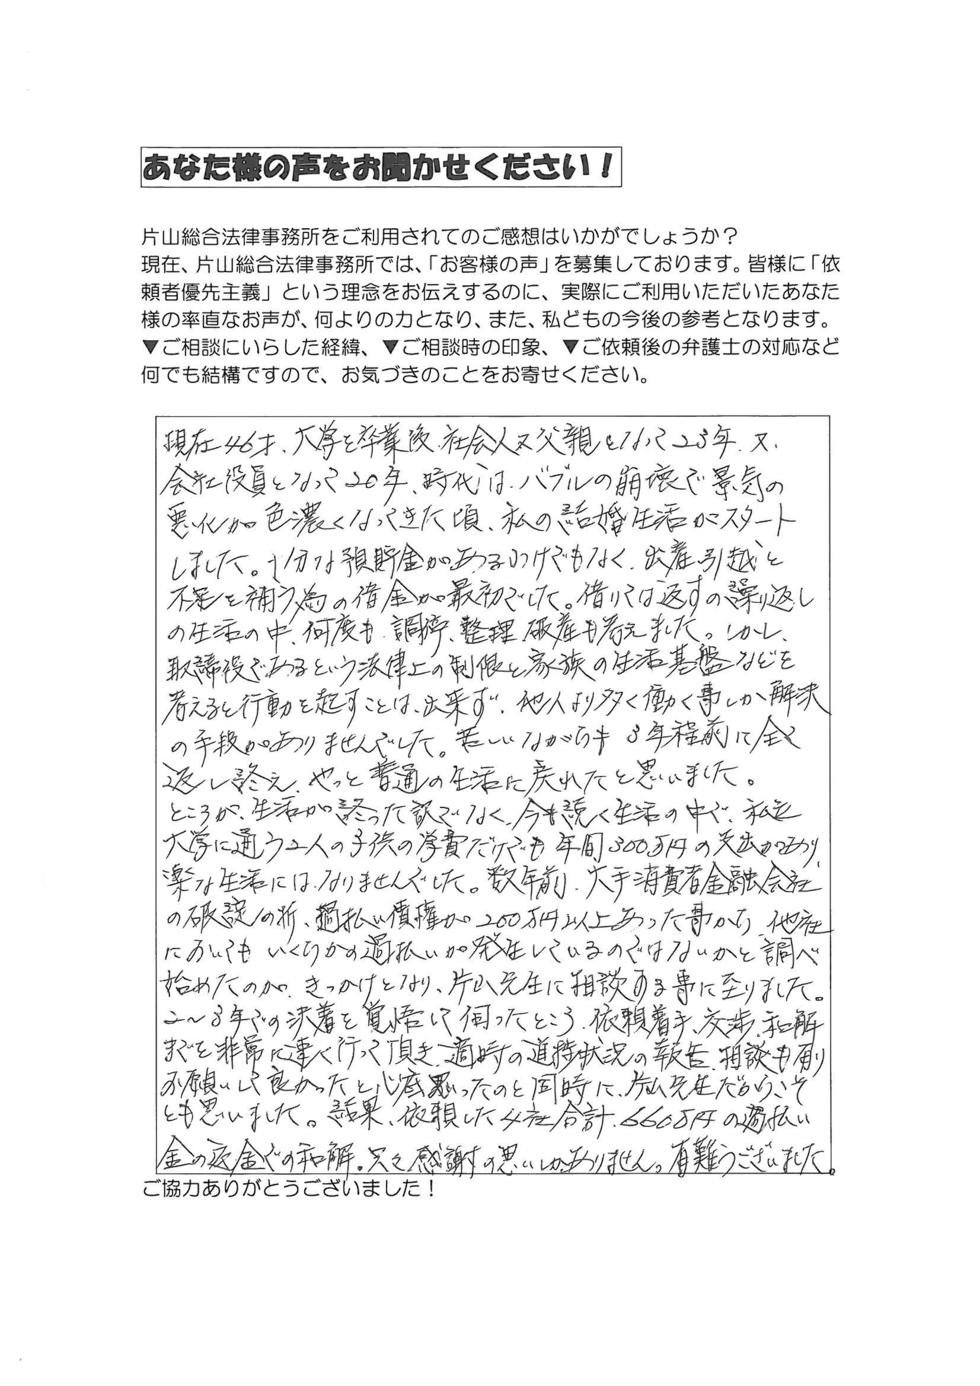 あなた様の声をお聞かせください！
片山総合法律事務所をご利用されてのご感想はいかがでしょうか？
現在、片山総合法律事務所では、「お客様の声」を募集しております。皆様に「依
頼者優先主義」という理念をお伝えするのに、実際にご利用いただいたあなた
様の率直なお声が、何よりの力となり、また、私どもの今後の参考となります。
▼ご相談にいらした経緯、▼ご相談時の印象、▼ご依頼後の弁護士の対応など
何でも結構ですので、お気づきのことをお寄せください。
現在46才、大学を卒業後、社会人又父親となって23年、又、
会社役員となって20年、時代は、バブルの崩壊で景気の
悪化が色濃くなってきた頃、私の結婚生活がスタート
しました。十分な預貯金があるわけでもなく、出産、引越と
不足を補う為の借金が最初でした。借りては返すの繰り返し
の生活の中、何度も、調停、整理、破産も考えました。しかし、
取締役であるという法律上の制限と家族の生活基盤などを
考えると行動を起すことは、出来ず、他人より多く働く事しか解決
の手段がありませんでした。苦しいながらも3年程前に全て
返し終え、やっと普通の生活に戻れたと思いました。
ところが、生活が終った訳でなく、今も続く生活の中で、私立
大学に通う2人の子供の学費だけでも年間300万円の支出があり、
楽な生活にはなりませんでした。数年前、大手消費者金融会社
の破綻の折、過払い債権が200万円以上あった事から、他社
においてもいくらかの過払いが発生しているのではないかと調べ
始めたのが、きっかけとなり、片山先生に相談する事に至りました。
2～3年での決着を覚悟して伺ったところ、依頼着手、交渉、和解
までを非常に速く行って頂き、適時の進捗状況の報告、相談も有り
お願いして良かったと心底思ったのと同時に、片山先生だからこそ
とも思いました。結果、依頼した4社合計、660万円の過払い
金の返金での和解。只々感謝の思いしかありません。有難うございました。
ご協力ありがとうございました！